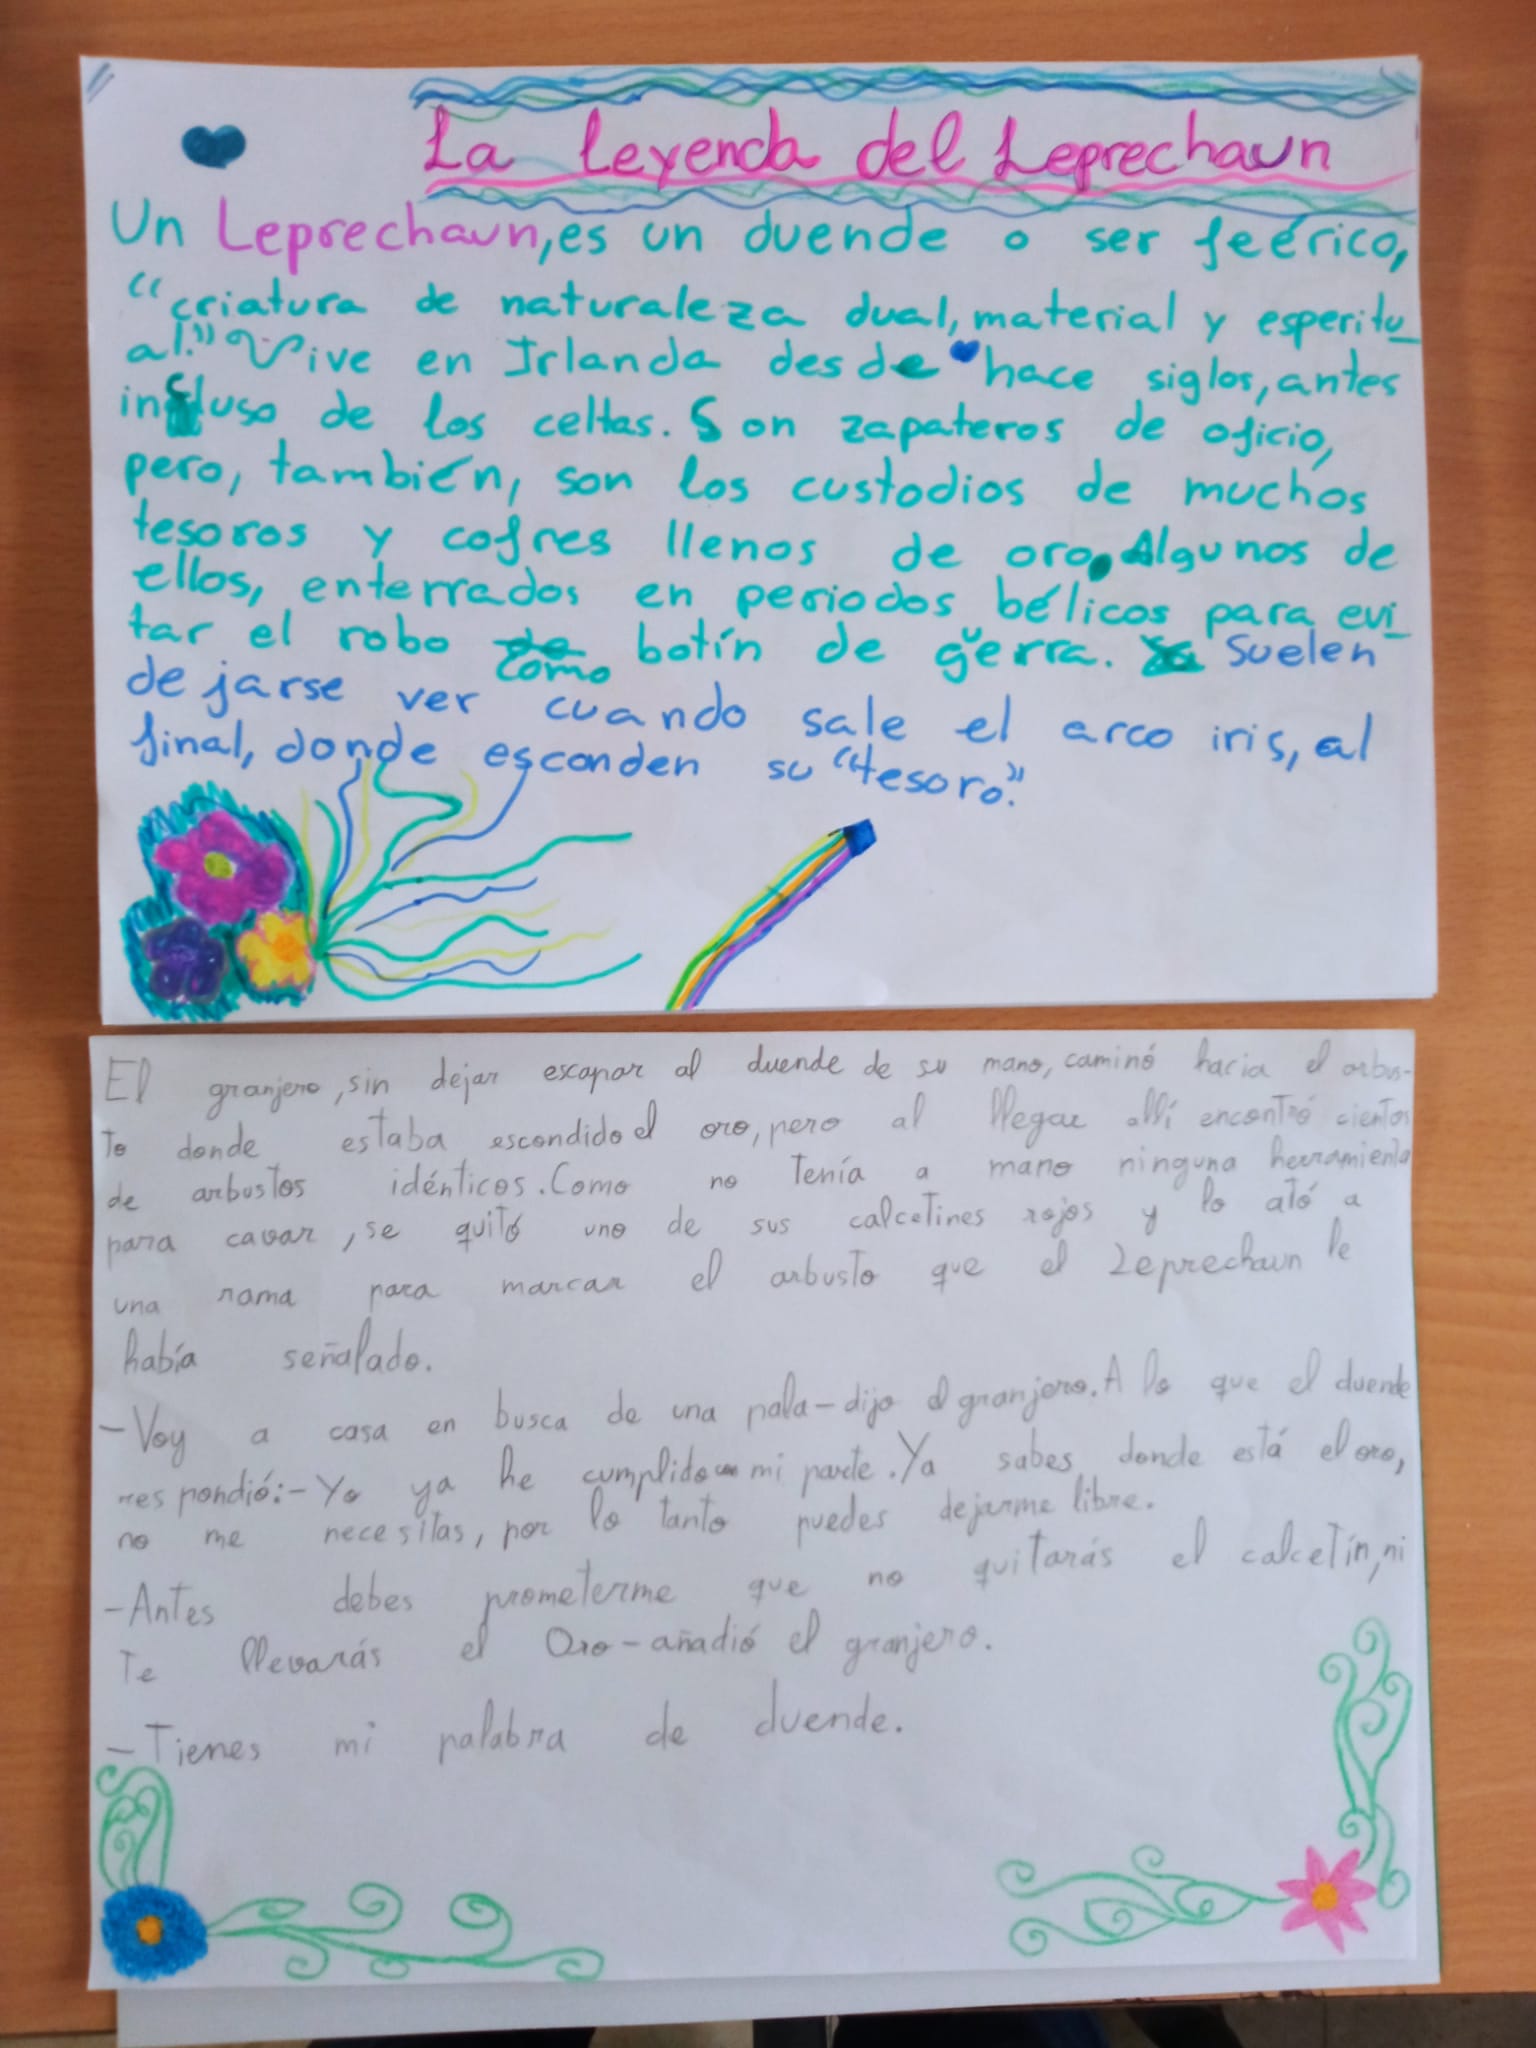 La Leyenda del Leprechaun
Un Leprechaun, es un duende o ser feérico,
"criatura de naturaleza dual, material y esperitu_
al." Vive en Irlanda desde hace siglos, antes
incluso de los celtas. Son zapateros de oficio,
pero, también, son los custodios de muchos
tesoros y cofres llenos de oro. Algunos de
ellos, enterrados en periodos bélicos para evi_
tar el robo como botín de gerra. Suelen
dejarse ver cuando sale el arco iris, al
final, donde esconden su "tesoro".
El granjero, sin dejar escapar al duende de su mano, caminó hacia el arbus-
to donde estaba escondido el oro, pero al llegar allí encontró cientos
de arbustos idénticos. Como no tenía a mano ninguna herramienta
para cavar, se quitó uno de sus calcetines rojos y lo ató a
una rama para marcar el arbusto que el Leprechaun le
había señalado.
-Voy a casa en busca de una pala-dijo el granjero. A lo que el duende
respondió:-Yo ya he cumplido mi parte. Ya sabes donde está el oro,
no me necesitas, por lo tanto puedes dejarme libre.
-Antes debes prometerme que no quitarás el calcetín, ni
te llevarás el Oro-añadió el granjero.
-Tienes mi palabra de duende.